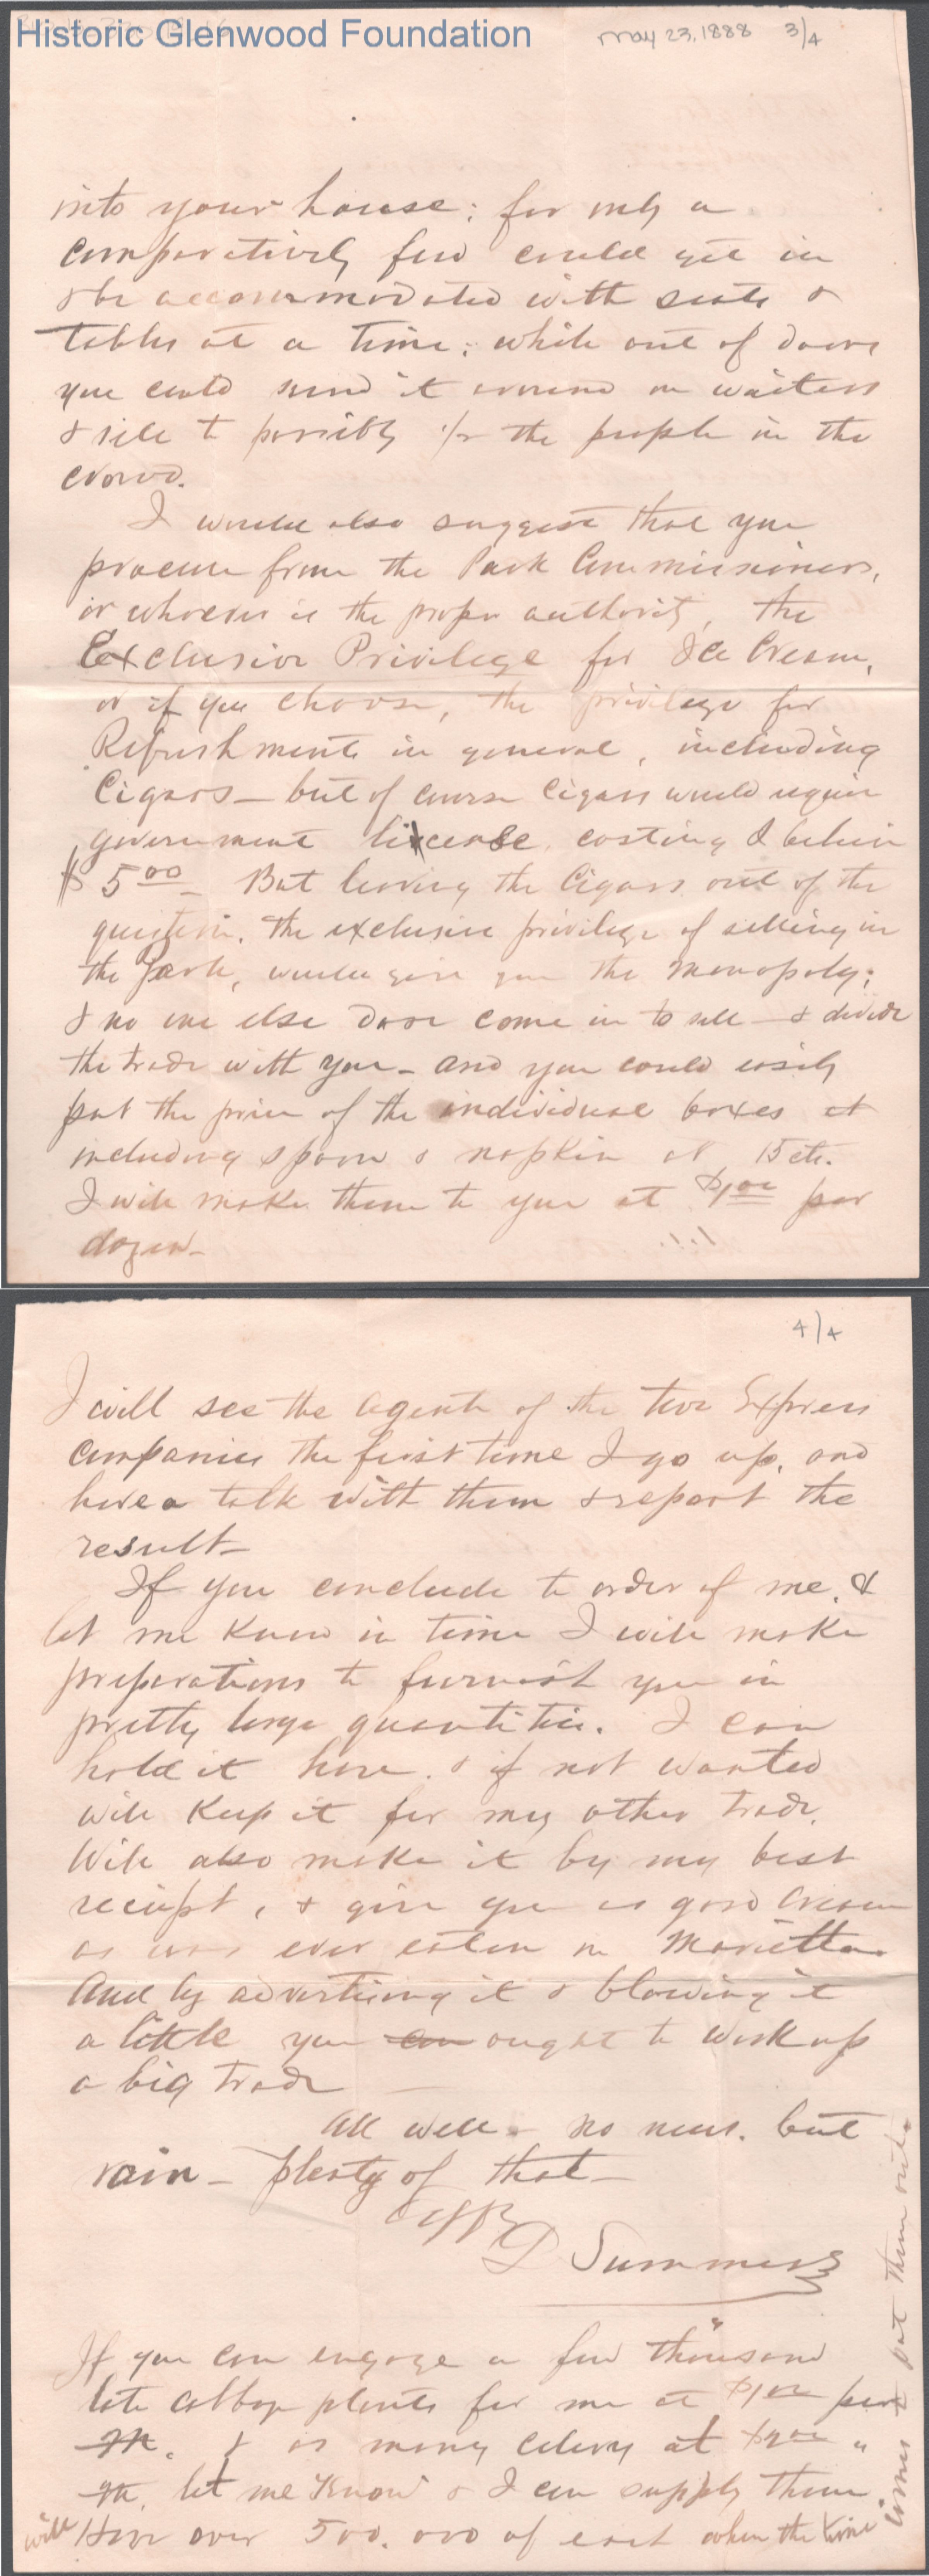 Historic Glenwood Foundation
May 23, 1888 3/4
into your house; for only a
comparatively few could get in
& be accommodated with seats &
tables at a time; while out of doors
you could send it around on waiters
& sell to possibly 1/2 the people in the
crowd.
I would also suggest that you
procure from the Park Commissioners,
or whoever is the proper authority, the
Exclusive Privilege for Ice Cream,
or if you choose, the privilege for
Refreshments in general, including
Cigars - but of course Cigars would require
government license, costing I believe
$5.00 - But leaving the Cigars out of the
question, the exclusive privilege of selling in
the Park, would give you the monopoly;
& no one else dare come in to sell - & divide
the trade with you - and you could easily
put the price of the individual boxes at
including spoon & napkin at 15 cts.
I will make them to you at $1.00 per
dozen -
4/4
I will see the Agents of the two Express
Companies the first time I go up, and
have a talk with them & report the
result -
If you conclude to order of me, &
let me know in time I will make
preparations to furnish you in
pretty large quantities. I can
hold it here, & if not wanted
will keep it for my other trade.
Will also make it by my best
receipt, & give you as good Cream
as was ever eaten in Marietta.
And by advertising it & blowing it
a little you can ought to work up
a big trade
All well - no news, but
rain - plenty of that -
L Summers
If you can engage a few thousand
late cabbage plants for me at $1.00 per
M. & as many celery at $2.00 "
M. let me know & I can supply them.
will Have over 500,000 of each when the time
comes to put them out.